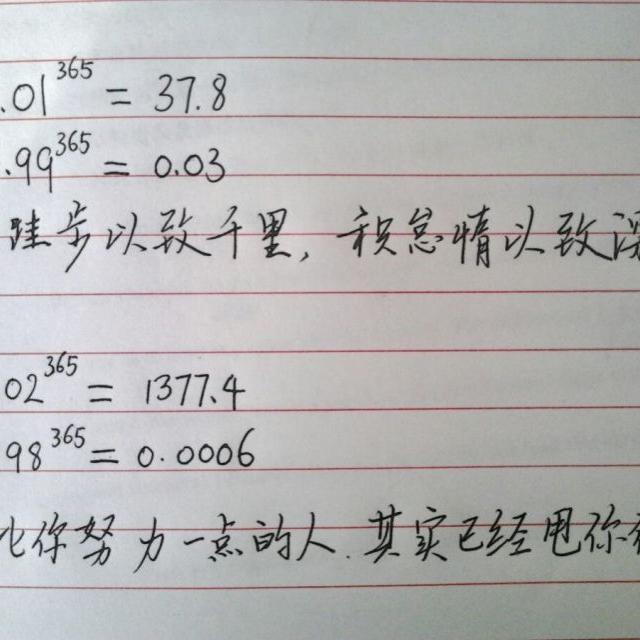 .01^365 = 37.8
.99^365 = 0.03
跬步以致千里, 积怠情以致深
02^365 = 1377.4
98^365 = 0.0006
比你努力一点的人.其实已经甩你